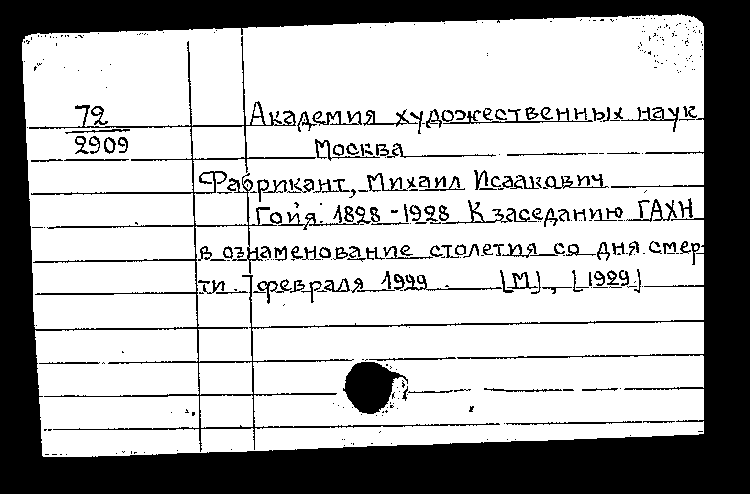 72
2909
Академия художественных наук
Москва
Фабрикант, Михаил Исаакович
Гойя 1828-1928 К заседанию ГАХН
в ознаменование столетия со дня смер-
ти. 7 февраля 1929. [М], [1929]